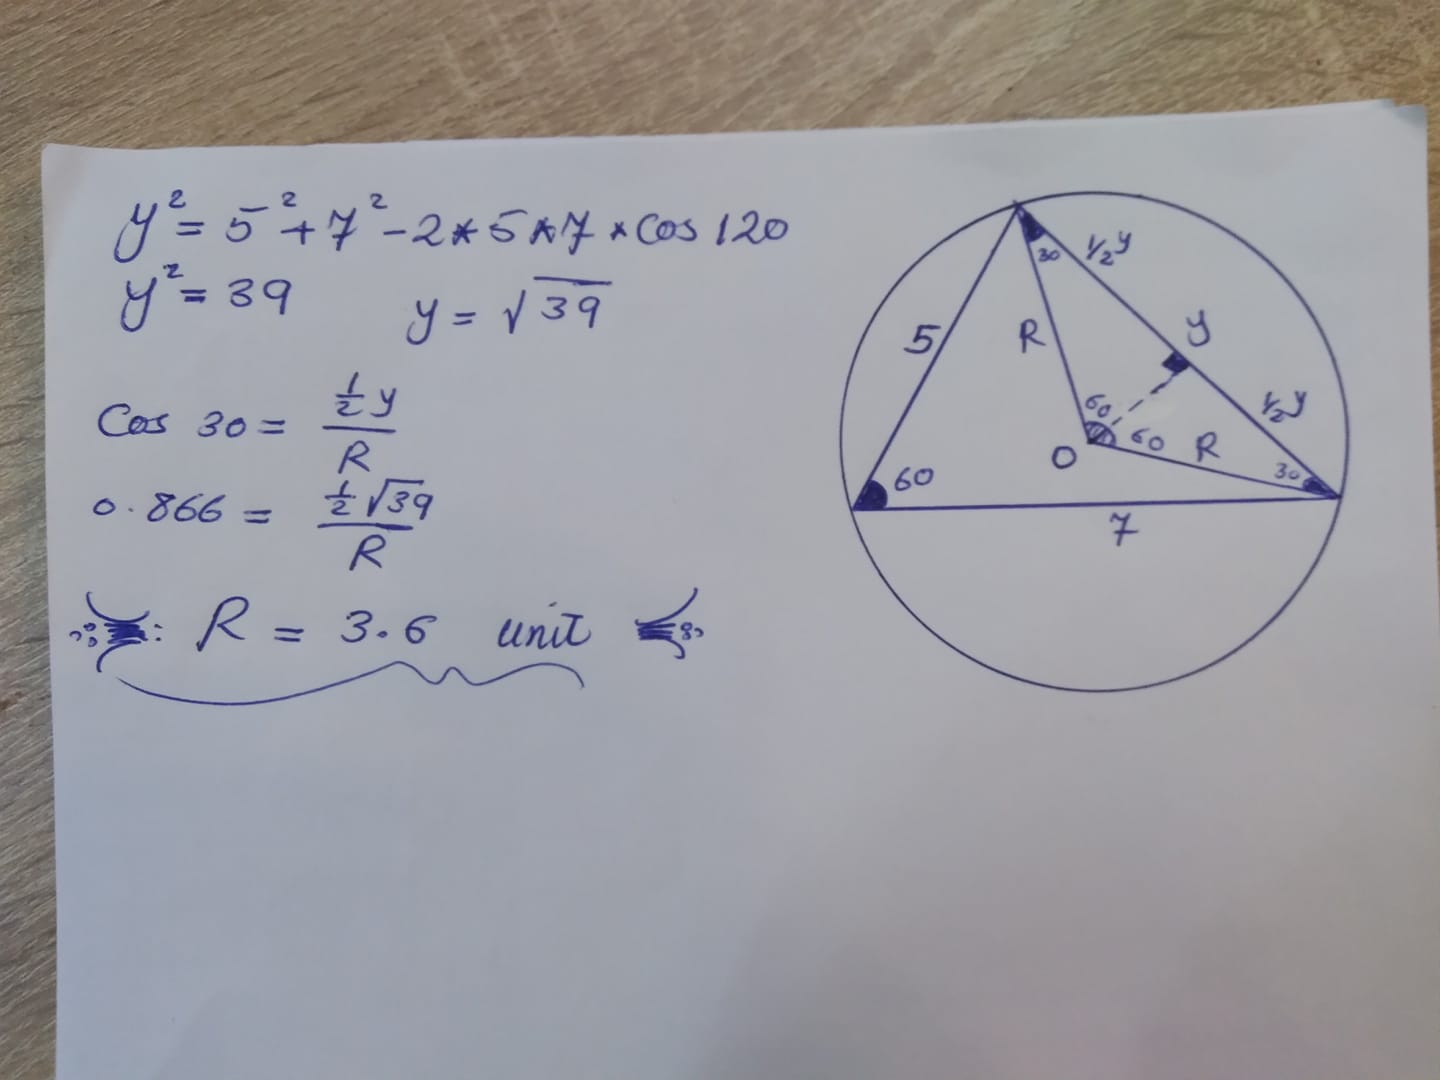 y² = 5² + 7² - 2 * 5 * 7 * Cos 120
y² = 39 y = √39
Cos 30 = ½ y / R
0.866 = ½ √39 / R
∴ R = 3.6 unit
30 ½y
5 R y
60 ½y
O 60 R
60 30
7